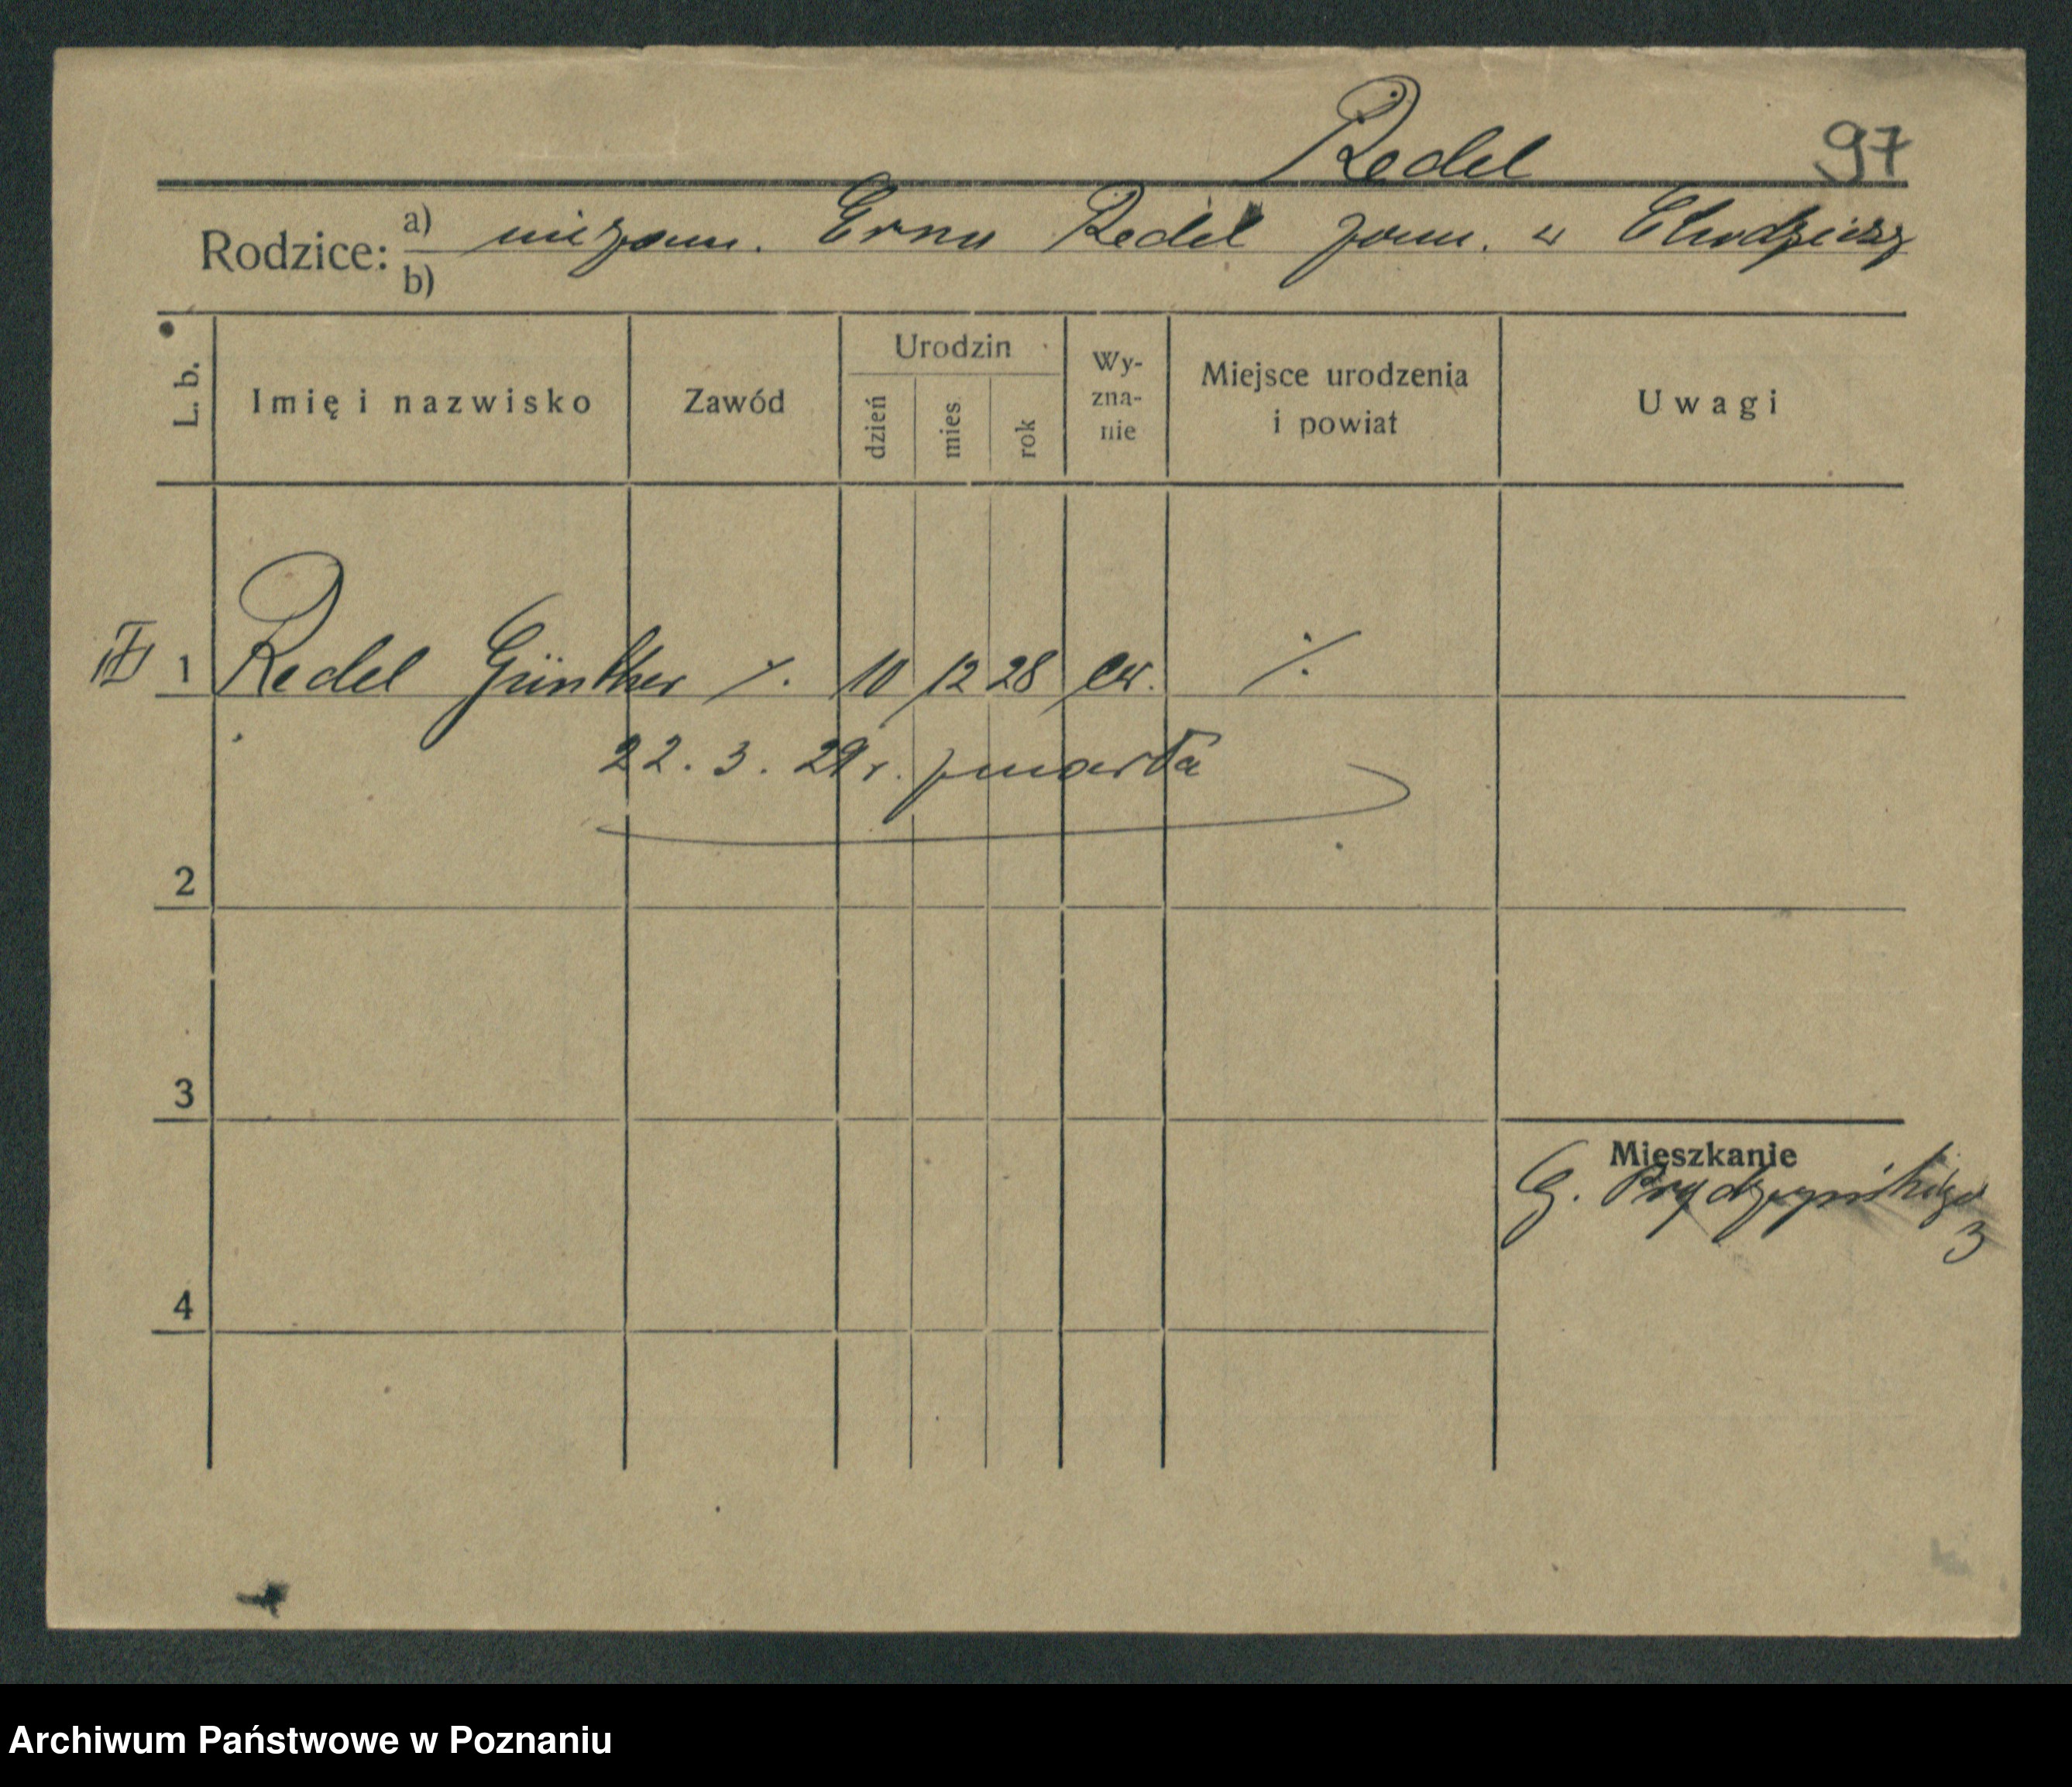 Redel 97
Rodzice: a) niezam. Erna Redel zam. w Chodzieży
b)
L. b. Imię i nazwisko Zawód Urodzin dzień mies. rok Wy-zna-nie Miejsce urodzenia i powiat Uwagi
III 1 Redel Günther ·/. 10 12 28 ew. ·/.
22. 3. 29 r. zmarła
2
3
Mieszkanie
G. Prądzyńskiego
3
4
Archiwum Państwowe w Poznaniu